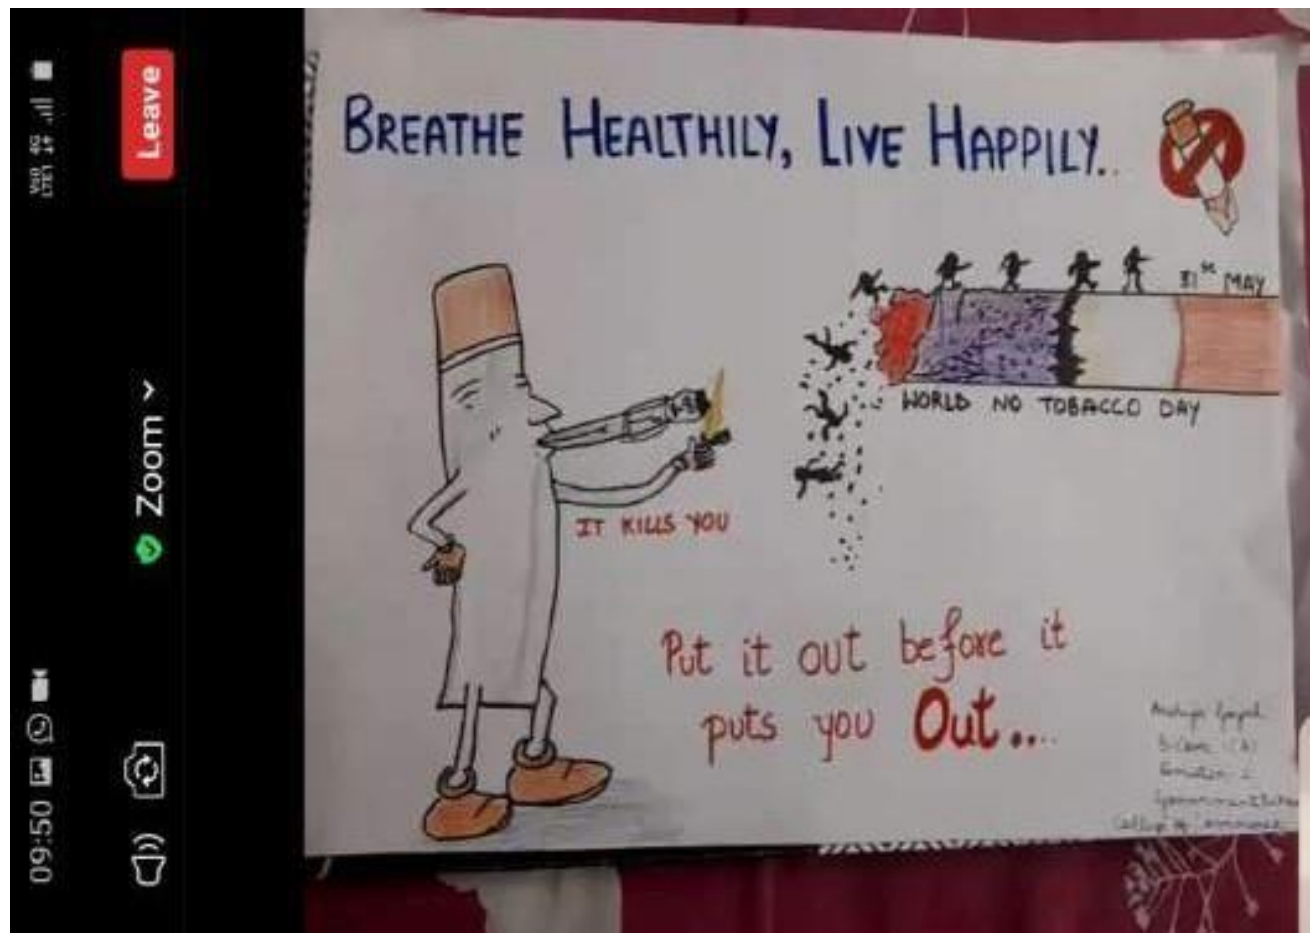 09:50
Vo)) 4G
LTE1
Leave
Zoom
BREATHE HEALTHILY, LIVE HAPPILY..
31st MAY
WORLD NO TOBACCO DAY
IT KILLS YOU
Put it out before it
puts you Out....